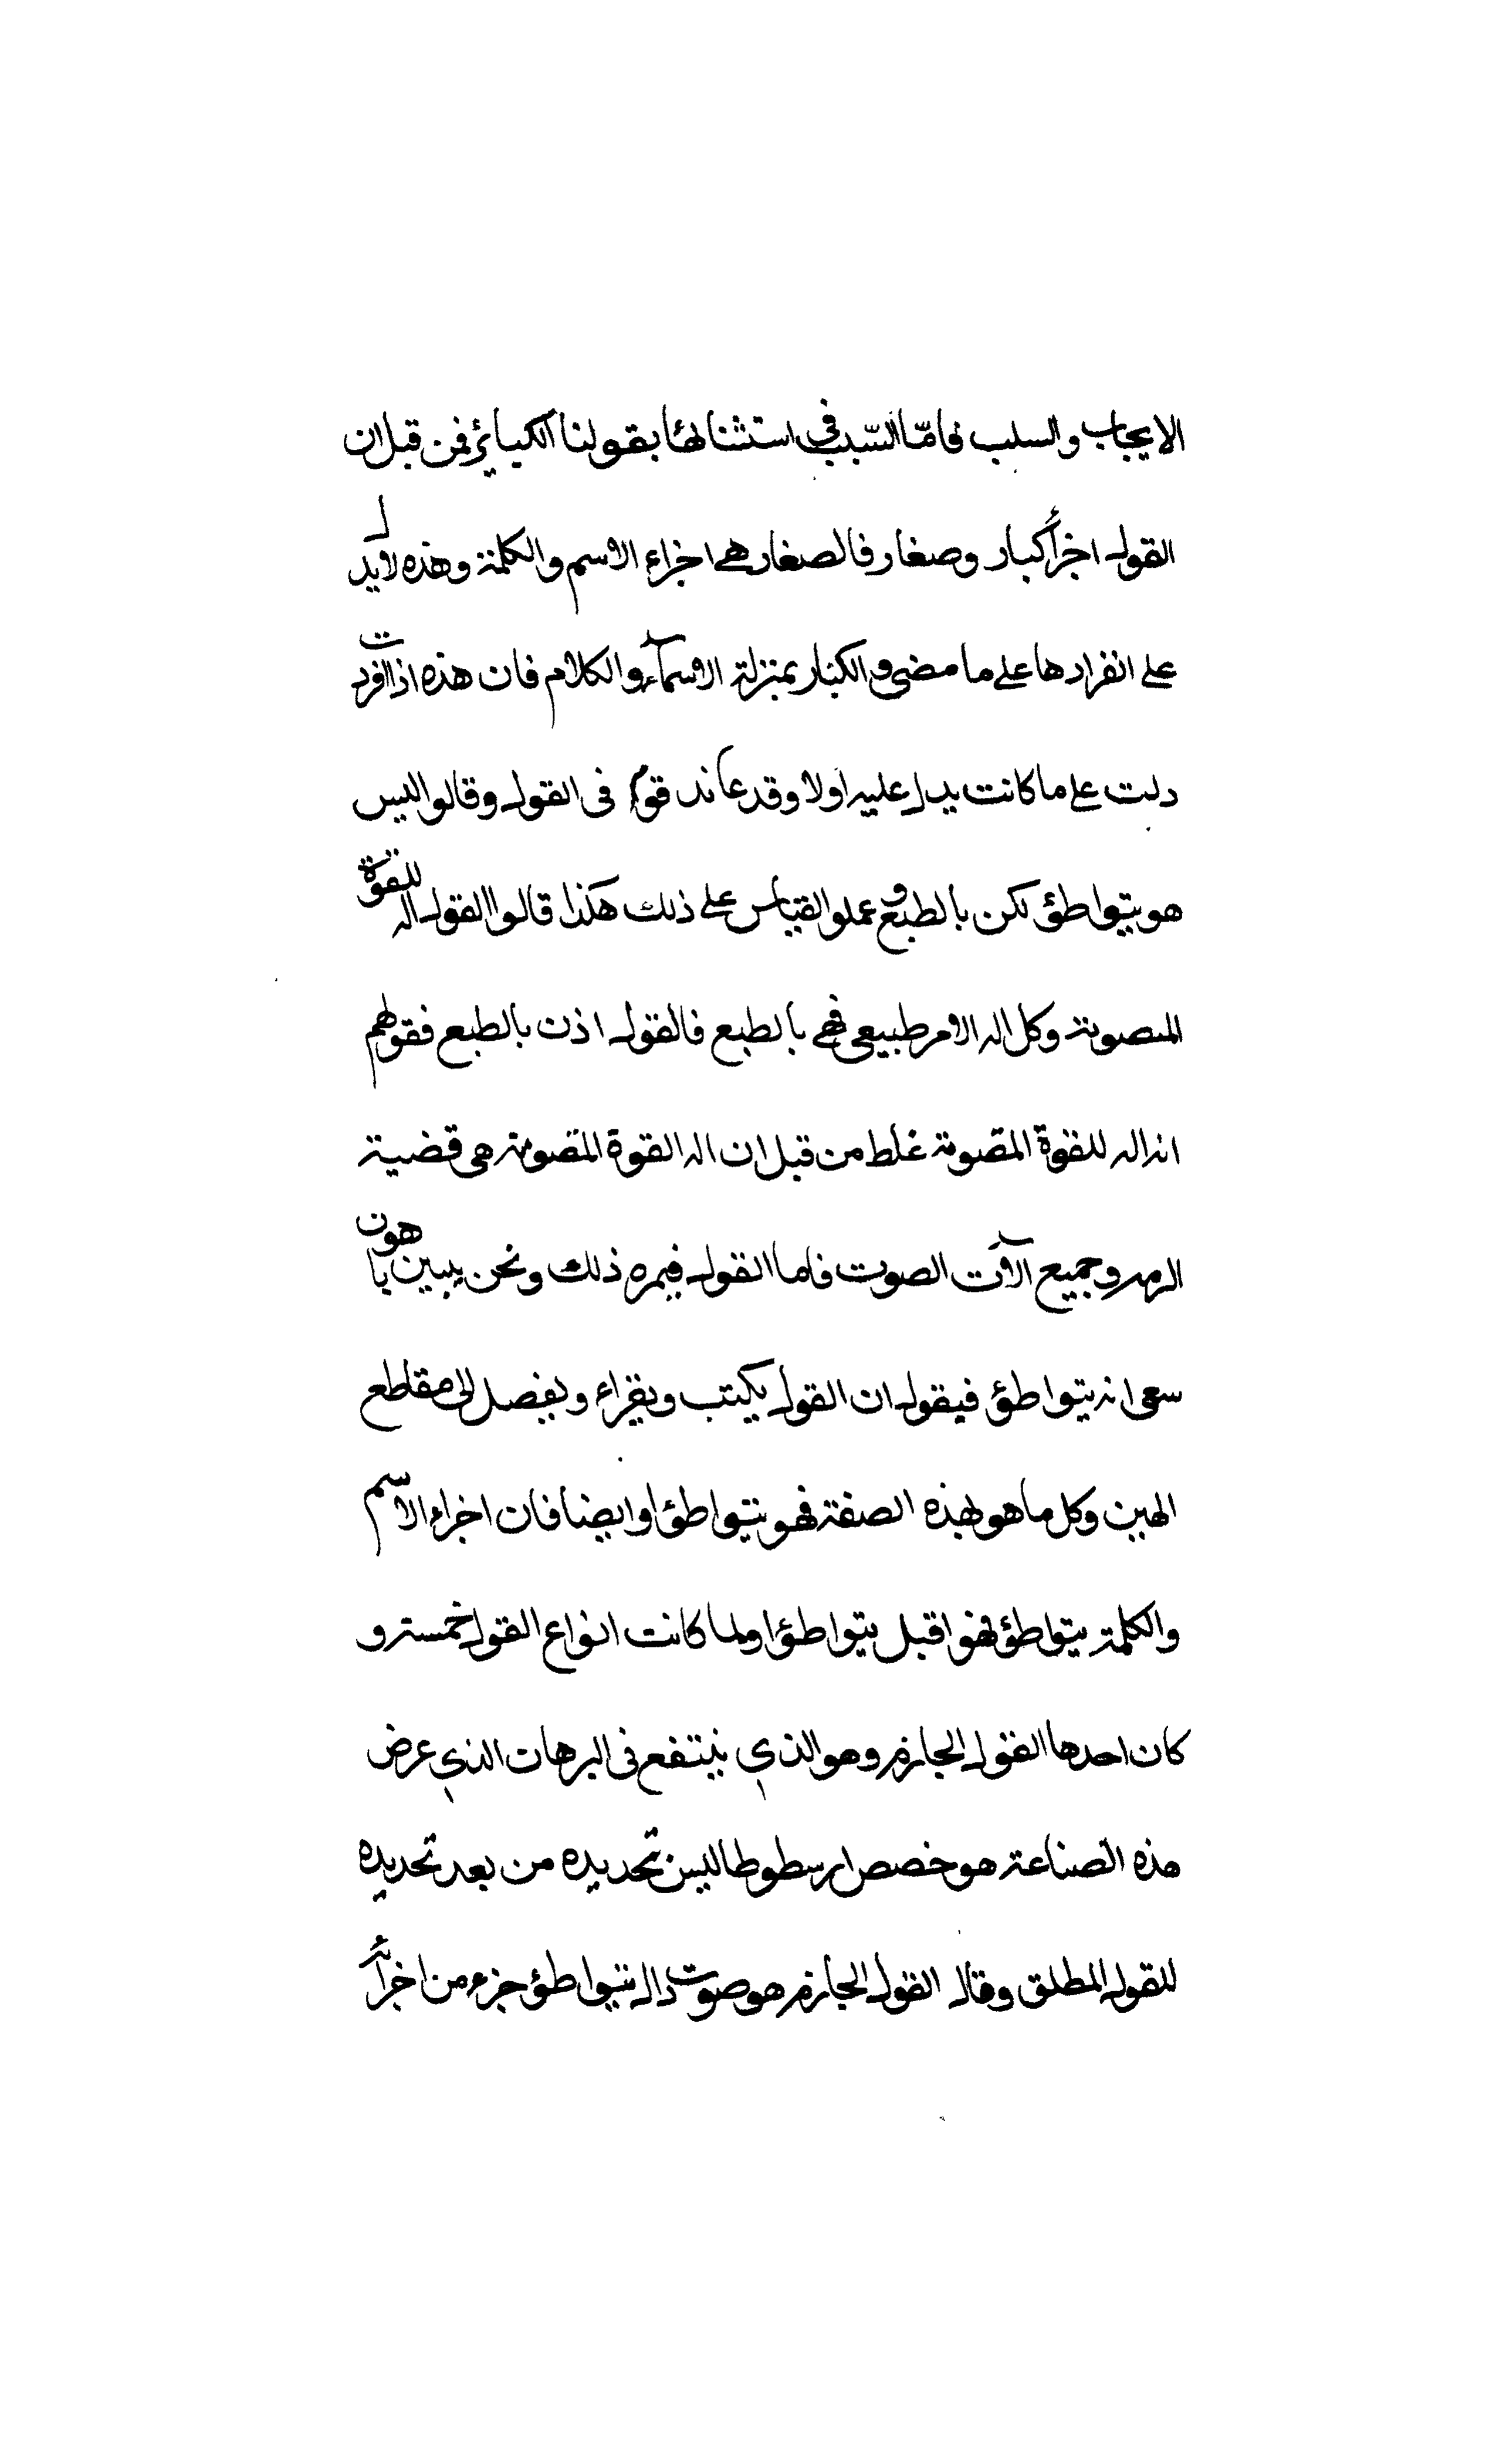 الايجاب والسلب فامّا السّبب في استثنائها بقولنا الكبائر فمن قبل ان
القول اجزأ كبار وصغار فالصغار هي اجزاء الاسم والكلمة وهذه لا يدل
على انفرادها على ما مضى و الكبار بمنزلة الاسمآء والكلام فان هذه اذا افردت
دلت على ما كانت يدل عليه اولا وقد عاند قوم فى القول وقالوا ليس
هو بتواطئ لكن بالطبع و عملوا القياس على ذلك هكذا قالوا القول اله للقوة
المصوتة وكل اله الامر طبيعى فهى بالطبع فالقول اذن بالطبع فقولهم
انه اله للقوة المصوتة غلط من قبل ان اله القوة المصوتة هى قصبة
الريه وجميع آلات الصوت فاما القول فثمره ذلك ونحن نبين باهون
سعى انه بتواطئ فيقول ان القول يكتب ويقراء ويفصل الى مقاطع
الهين وكل ما هو بهذه الصفة فهو بتواطئ او ايضا فان اجزاء الاسم
والكلمة بتواطئ فهو اقبل بتواطئ اولما كانت انواع القول خمسة و
كان احدها القول الجازم وهو الذي ينتفع فى البرهان الذي غرض
هذه الصناعة هو خصص ارسطوطاليس تحديده من بعد تحديده
للقول المطلق وقال القول الجازم هو صوت دال بتواطئ جزء من اجزائه